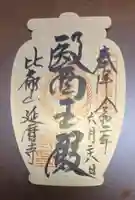 奉拝 令和二年
六月二十八日
醫王殿
比叡山延暦寺